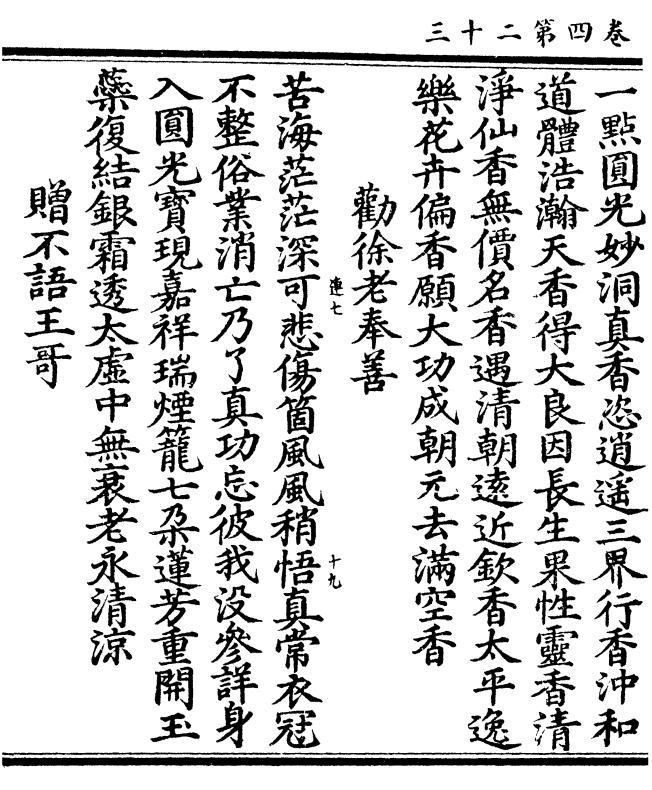 三十二第四卷
一點圓光妙洞真香恣逍遥三界行香沖和
道體浩瀚天香得大良因長生果性靈香清
淨仙香無價名香遇清朝遠近欽香太平逸
樂花卉偏香願大功成朝元去滿空香
勸徐老奉善
苦海茫茫深可悲傷箇風風稍悟真常衣冠
連七
十九
不整俗業消亡乃了真功忘彼我没參詳身
入圓光寶現嘉祥瑞煙籠七朵蓮芳重開玉
藥復結銀霜透太虛中無衰老永清涼
贈不語王哥